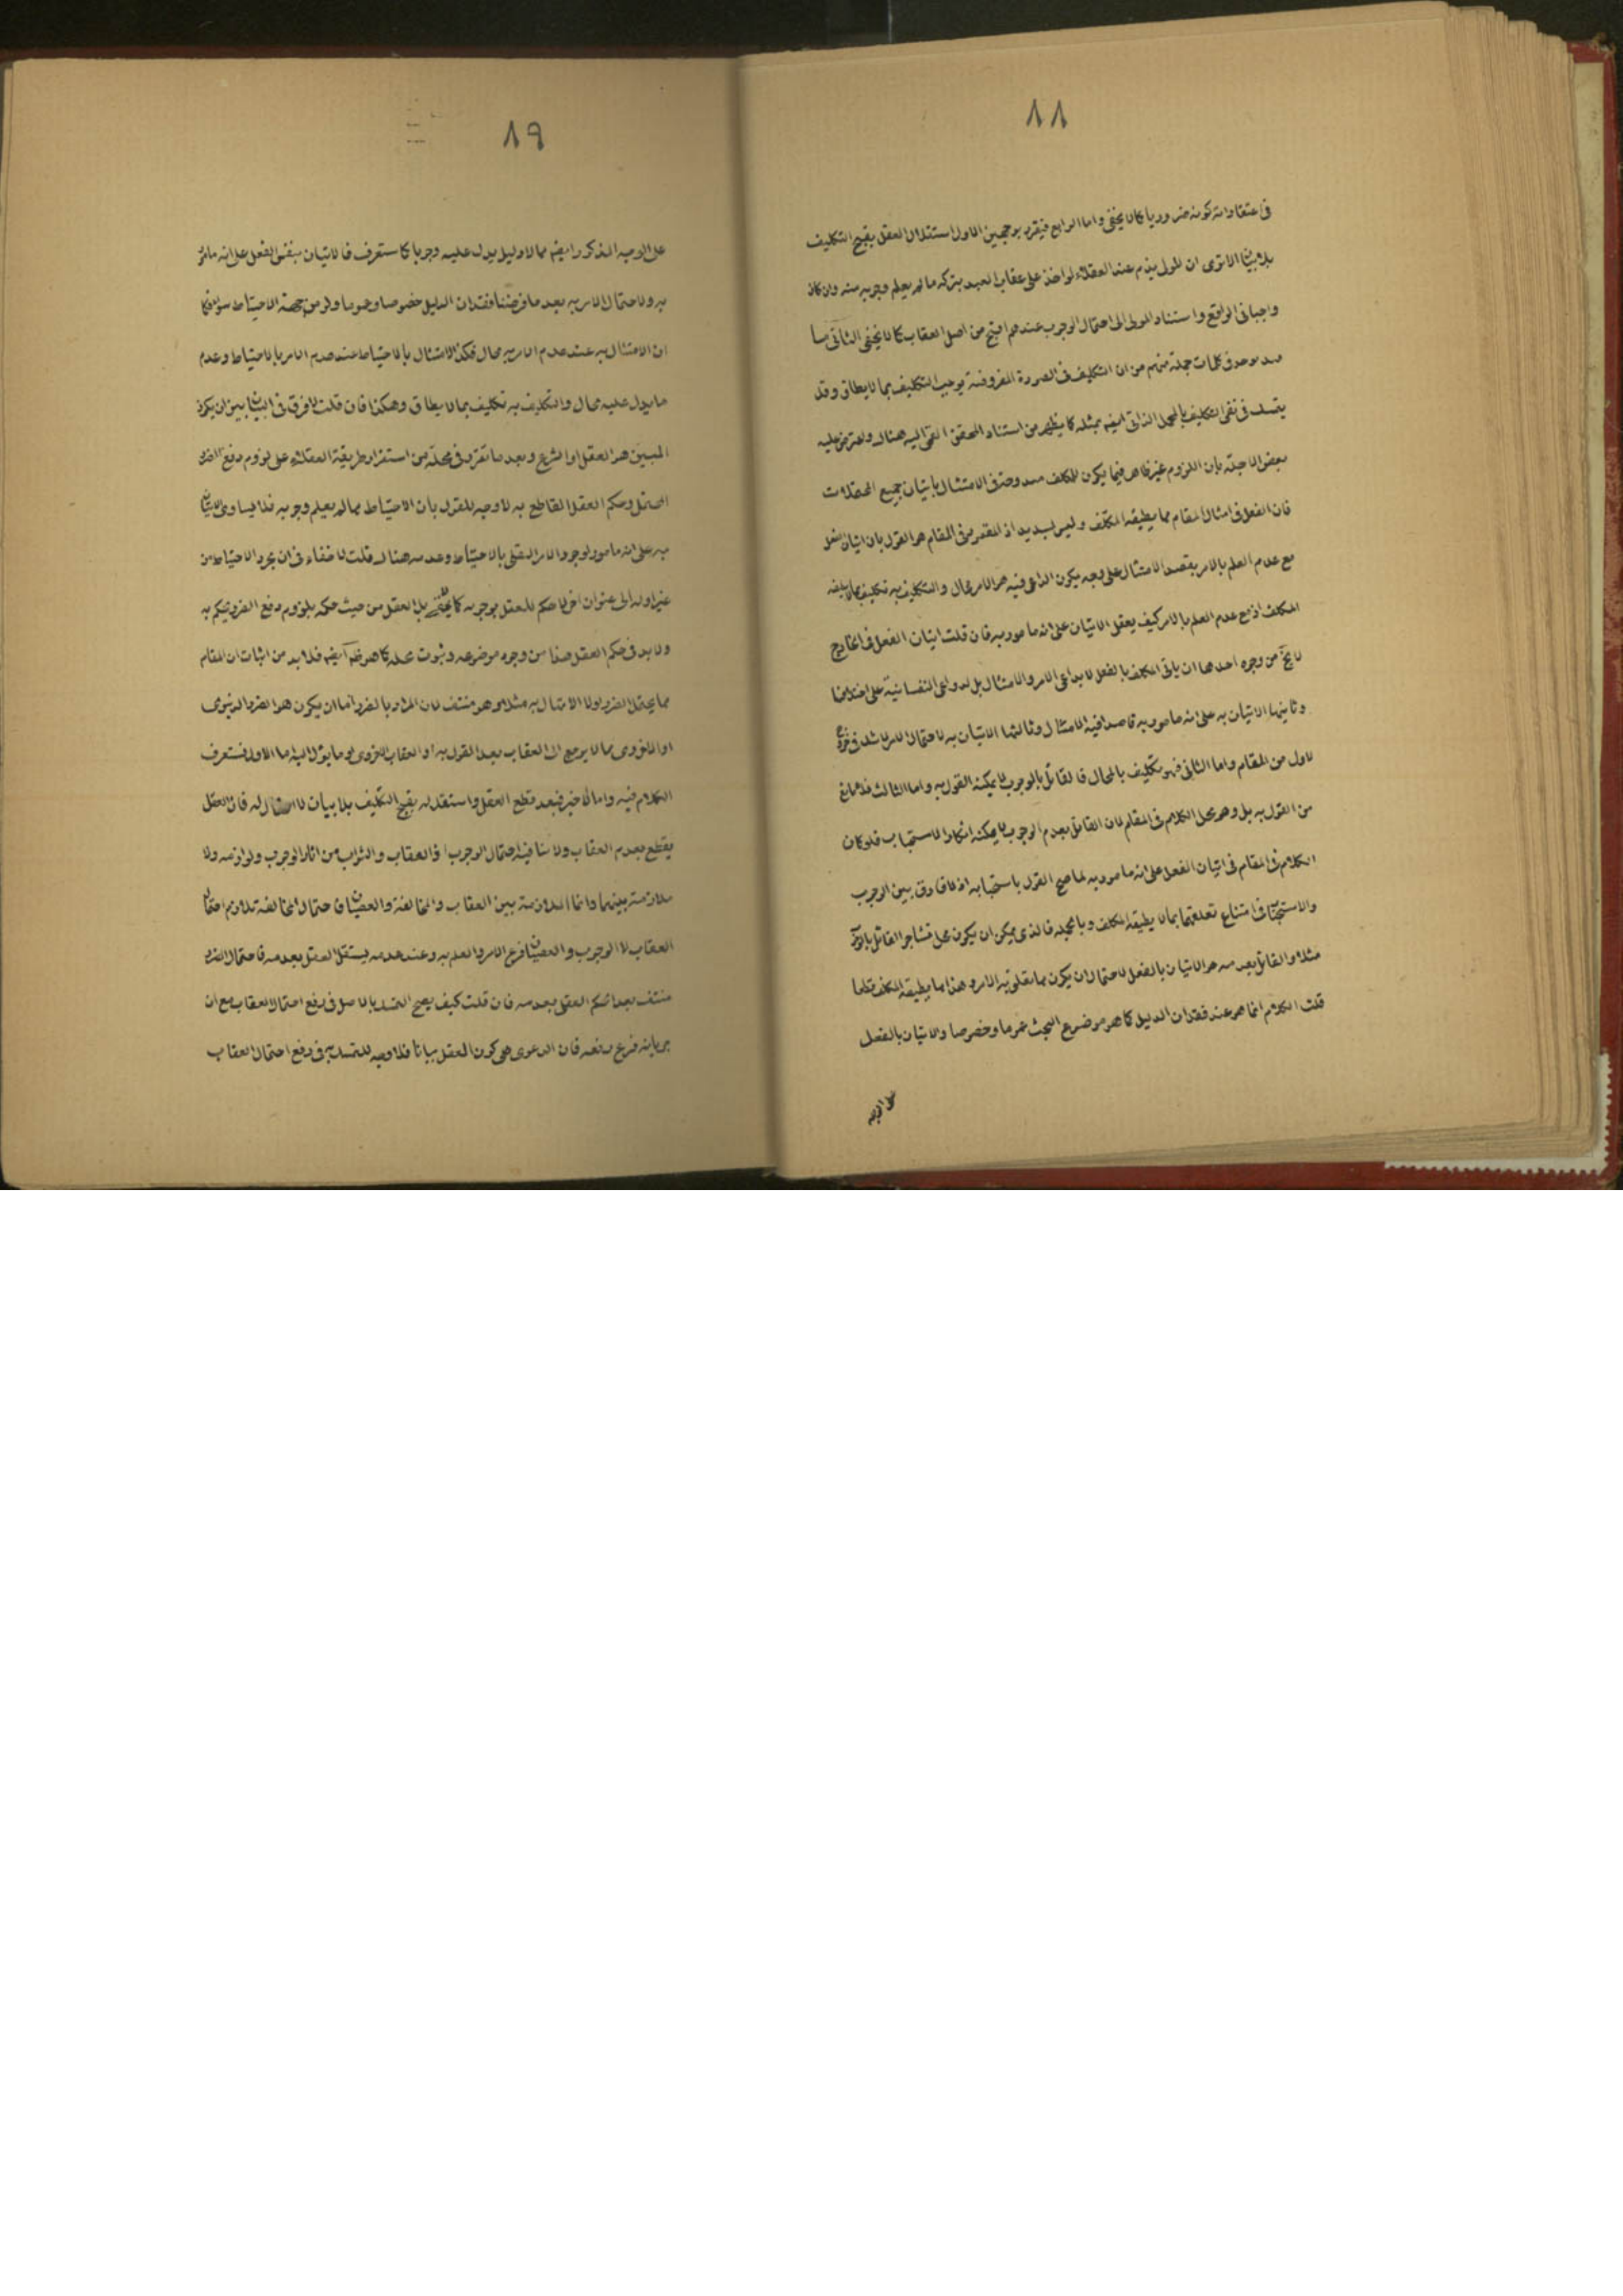 ٨٨
فى اعتقاداته كونه ضروريا كما لا يخفى واما الرابع فيقرر بوجهين الاول استقلال العقل بقبح التكليف
بلا بيان الا ترى ان المولى يذم عند العقلاء لو اخذ على عقاب العبد بتركه ما لم يعلم وجوبه منه وان كان
واجبا فى الواقع واستناد المولى الى احتمال الوجوب عندهم اقبح من اصل العقاب كما لا يخفى الثانى ما
يوجد فى كلمات جملة منهم من ان التكليف فى الصورة المفروضة يوجب التكليف بما لا يطاق وقد
يتمسك فى نفى التكليف بالمجمل الذاتى ايضا بمثله كما يظهر من استناد المحقق القمى اليه هناك واعترض عليه
بعض الاجلة بان اللزوم غير ظاهر فيما يكون للمكلف مندوحة فى الامتثال باتيان جميع المحتملات
فان الفعل فى امثال المقام مما يطيقه المكلف وليس بسديد اذ المقصود فى المقام هو القول بان اتيان الفعل
مع عدم العلم بالامر بقصد الامتثال على وجه يكون الداعى فيه هو الامر محال والتكليف به تكليف بما لا يطيقه
المكلف اذ مع عدم العلم بالامر كيف يعقل الاتيان على انه مامور به فان قلت اتيان الفعل فى الخارج
لا يخ من وجوه احدها ان ياتى المكلف بالفعل لا بداعى الامر والامتثال بل لدواعى النفسانية على اختلافها
وثانيها الاتيان به على انه مامور به قاصدا فيه الامتثال وثالثها الاتيان به لاحتمال الامر لا شك فى خروج
الاول من المقام واما الثانى فهو تكليف بالمحال فالقائل بالوجوب لا يمكنه القول به واما الثالث فلا مانع
من القول به بل وهو محل الكلام فى المقام لان القائل بعدم الوجوب لا يمكنه انكار الاستحباب فلو كان
الكلام فى المقام فى اتيان الفعل على انه مامور به لما صح القول باستحبابه اذ لا فارق بين الوجوب
والاستحباب فى امتناع تعلقهما بما لا يطيقه المكلف وبالجملة فالذى يمكن ان يكون محل تشاجر القائل بالوجوب
مثلا والقائل بعدمه هو الاتيان بالفعل لاحتمال ان يكون مما تعلق به الامر وهذا مما يطيقه المكلف قطعا
قلت الكلام انما هو عند فقدان الدليل كما هو موضوع البحث عموما وخصوصا والاتيان بالفعل
على الوجه
٨٩
على الوجه المذكور ايضا مما لا دليل يدل عليه وجوبا كما ستعرف فالاتيان بنفس الفعل على انه مامور
به ولاحتمال الامر به بعد ما فرضنا فقدان الدليل خصوصا وعموما ولو من جهة الاحتياط سواء فكما
ان الامتثال به عند عدم الامر به محال فكذا الامتثال بالاحتياط عند عدم الامر بالاحتياط وعدم
ما يدل عليه محال والتكليف به تكليف بما لا يطاق وهكذا فان قلت لا فرق فى البيان بين ان يكون
المبين هو العقل او الشرع وبعد ما تقرر فى محله من استقرار طريقة العقلاء على لزوم دفع الضرر
المحتمل وحكم العقل القاطع به لا وجه للقول بان الاحتياط مما لم يعلم وجوبه فذا يساوى الاتيان
به على انه مامور لوجود الامر العقلى بالاحتياط وعدمه هناك قلت لا خفاء فى ان مجرد الاحتياط من
غير اوله الى عنوان اخر لا حكم للعقل بوجوبه كما لا يخفى بل العقل من حيث حكمه بلزوم دفع الضرر يحكم به
ولا بد فى حكم العقل هذا من وجود موضوعه وثبوت محله كما هو ظاهر ايضا فلا بد من اثبات ان المقام
مما يحتمل الضرر لولا الاتيان به مثلا وهو منتف لان المراد بالضرر اما ان يكون هو الضرر الدنيوى
او الاخروى مما لا يرجع الى العقاب بعد القول به او العقاب الاخروى وما يؤل اليه اما الاول فستعرف
الكلام فيه واما الاخير فبعد قطع العقل واستقلاله بقبح التكليف بلا بيان لا احتمال له فان العقل
يقطع بعدم العقاب ولا ينافيه احتمال الوجوب اذ العقاب والثواب من اثار الوجوب ولوازمه ولا
ملازمة بينهما وانما الملازمة بين العقاب والمخالفة والعصيان فاحتمال المخالفة تلازم احتمال
العقاب لا الوجوب والعصيان فرع الامر والعلم به وعند عدمه يستقل العقل بعدمه فاحتمال الضرر
منتف بعد حكم العقل بعدمه فان قلت كيف يصح التمسك بالاصل فى دفع احتمال العقاب مع ان
جريانه فرع دفعه فان الدعوى هى كون العقل بيانا فلا وجه للتمسك به فى دفع احتمال العقاب